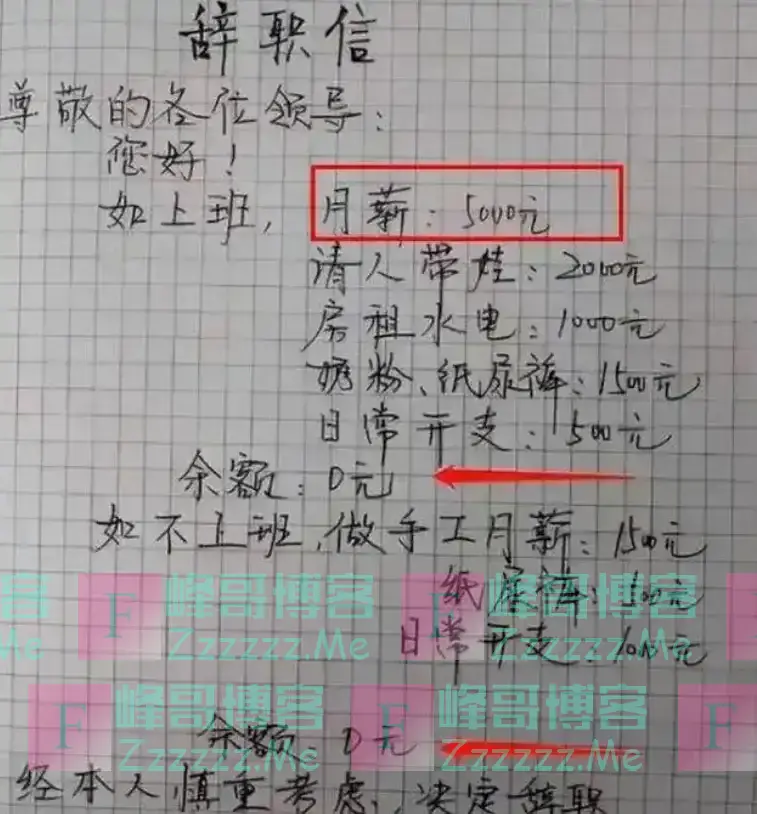 辞职信
尊敬的各位领导:
您好!
如上班, 月薪: 5000元
请人带娃: 2000元
房租水电: 1000元
奶粉、纸尿裤: 1500元
日常开支: 500元
余额: 0元
如不上班,做手工月薪: 1500元
纸尿裤: 500元
日常开支: 1000元
余额: 0元
经本人慎重考虑, 决定辞职
F 峰哥博客 Zzzzzz.Me
F 峰哥博客 Zzzzzz.Me
F 峰哥博客 Zzzzzz.Me
F 峰哥博客 Zzzzzz.Me